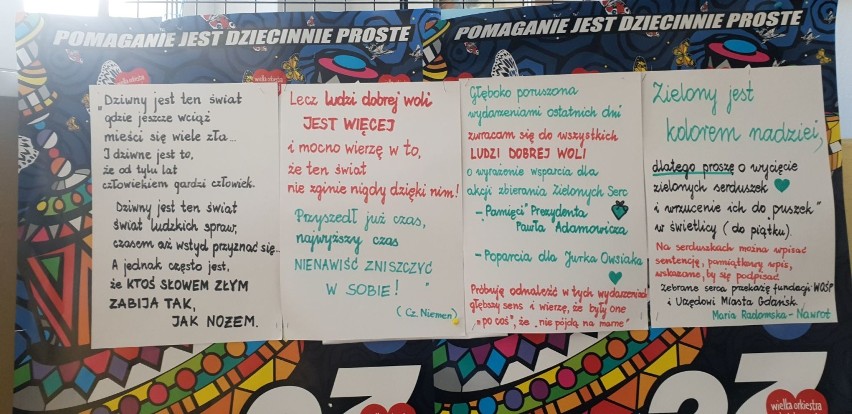 POMAGANIE JEST DZIECINNIE PROSTE
POMAGANIE JEST DZIECINNIE PROSTE
wielka orkiestra
"Dziwny jest ten świat
gdzie jeszcze wciąż
mieści się wiele zła...
I dziwne jest to,
że od tylu lat
człowiekiem gardzi człowiek.
Dziwny jest ten świat
świat ludzkich spraw,
czasem aż wstyd przyznać się...
A jednak często jest,
że KTOŚ SŁOWEM ZŁYM
ZABIJA TAK,
JAK NOŻEM.
Lecz ludzi dobrej woli
JEST WIĘCEJ
i mocno wierzę w to,
że ten świat
nie zginie nigdy dzięki nim!
Przyszedł już czas,
najwyższy czas
NIENAWIŚĆ ZNISZCZYĆ
W SOBIE!"
(Cz. Niemen)
Głęboko poruszona
wydarzeniami ostatnich dni
zwracam się do wszystkich
LUDZI DOBREJ WOLI
o wyrażenie wsparcia dla
akcji zbierania Zielonych Serc
- "Pamięci" Prezydenta
Pawła Adamowicza
- Poparcia dla Jurka Owsiaka
Próbuję odnaleźć w tych wydarzeniach
głębszy sens i wierzę, że były one
"po coś", że "nie pójdą na marne"
Zielony jest
kolorem nadziei,
dlatego proszę o wycięcie
zielonych serduszek
i wrzucenie ich do "puszek"
w świetlicy (do piątku).
Na serduszkach można wpisać
sentencję, pamiątkowy wpis,
wskazane, by się podpisać
Zebrane serca przekażę fundacji WOŚP
i Urzędowi Miasta Gdańsk.
Maria Radomska-Nawrot
27
27
wielka orkiestra